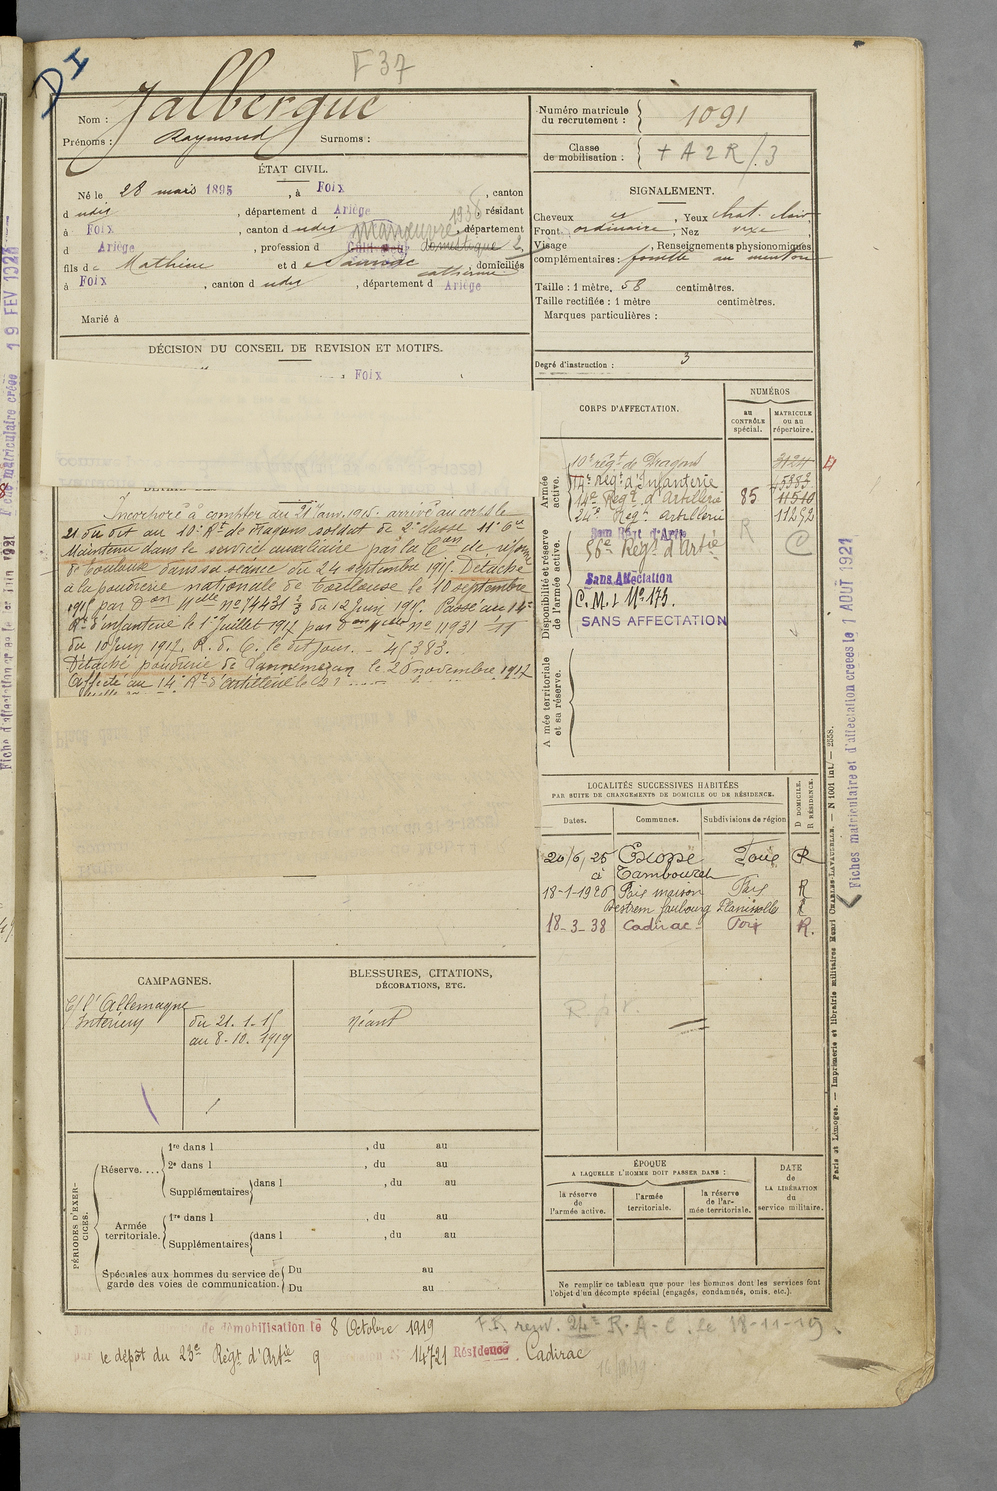 F 37
D I
Nom : Jalbergue
Prénoms : Raymond Surnoms :
Numéro matricule du recrutement : 1091
Classe de mobilisation : + A 2 R / 3
ÉTAT CIVIL.
Né le 28 mars 1895, à Foix, canton
d udit, département d Ariège, résidant
à Foix, canton d udit, département
d Ariège, profession d domestique 2
1938 Manœuvre
fils de Mathieu et d e
Catherine, domiciliés
à Foix, canton d udit, département d Ariège
Marié à
SIGNALEMENT.
Cheveux, Yeux chat. clair
Front ordinaire, Nez
Visage, Renseignements physionomiques
complémentaires : au menton
Taille : 1 mètre, 58 centimètres.
Taille rectifiée : 1 mètre centimètres.
Marques particulières :
Degré d'instruction : 3
DÉCISION DU CONSEIL DE REVISION ET MOTIFS.
Foix
Incorporé à compter du 21 Janv. 1915. arrivé au corps le
21 du dit au 10e Rt de dragons soldat de 2e classe
Maintenu dans le service auxiliaire par la Con de réforme
de Toulouse dans sa séance du 24 septembre 1915. Détaché
à la poudrerie nationale de Toulouse le 10 septembre
1915 par Don Mlle No 74431 2/3 du 12 Juin 1915. Passé au 14e
Rt d'infanterie le 1er Juillet 1917 par Don Mlle No 11931
du 10 Juin 1917. R. d. C. le dit jour. - 45383.
Détaché poudrerie de Lannemezan le 26 novembre 1917
Affecté au 14e Rt d'artillerie le
CORPS D'AFFECTATION.
NUMÉROS
au CONTRÔLE spécial.
MATRICULE OU AU répertoire.
Armée active.
10e régt de Dragons 3124
14e Régt d'Infanterie 45383
14e Régt d'Artillerie 85 11510
24e Régt Artillerie 11252
Disponibilité et réserve de l'armée active.
R C
56e Régt d'Artie
Sans Affectation
C. M. I No 175.
SANS AFFECTATION
Armée territoriale et sa réserve.
LOCALITÉS SUCCESSIVES HABITÉES
PAR SUITE DE CHANGEMENTS DE DOMICILE OU DE RÉSIDENCE.
Dates. Communes. Subdivisions de région
D DOMICILE. R RÉSIDENCE.
20/5/25 Ecosse Foix R
à Tambouret
18-1-1926 Foix maison Foix R
Destrem faubourg Planissolles
18-3-38 Cadirac Foix R.
CAMPAGNES.
C/ l'Allemagne
Intérieur du 21.1.15
au 8-10.1919
BLESSURES, CITATIONS,
DÉCORATIONS, ETC.
Néant
PÉRIODES D'EXERCICES.
Réserve....
1re dans l , du au
2e dans l , du au
Supplémentaires dans l , du au
Armée territoriale.
1re dans l , du au
Supplémentaires dans l , du au
Spéciales aux hommes du service de garde des voies de communication.
Du au
Du au
ÉPOQUE
A LAQUELLE L'HOMME DOIT PASSER DANS :
la réserve de l'armée active.
l'armée territoriale.
la réserve de l'armée territoriale.
DATE de LA LIBÉRATION du service militaire.
Ne remplir ce tableau que pour les hommes dont les services font
l'objet d'un décompte spécial (engagés, condamnés, omis, etc.).
de démobilisation le 8 Octobre 1919
F. R. 24e R.A.C. le 18-11-19.
par le dépôt du 23e Régt d'Artie 14721 Résidence Cadirac
Paris et Limoges. — Imprimerie et librairie militaires Henri CHARLES-LAVAUZELLE. — N 1001 int/ — 2558.
Fiches matriculaire et d'affectation créées le 1 AOUT 1921
matriculaire créée 19 FEV 1923
Fiche d'affectation créée le 1er Juin 1931